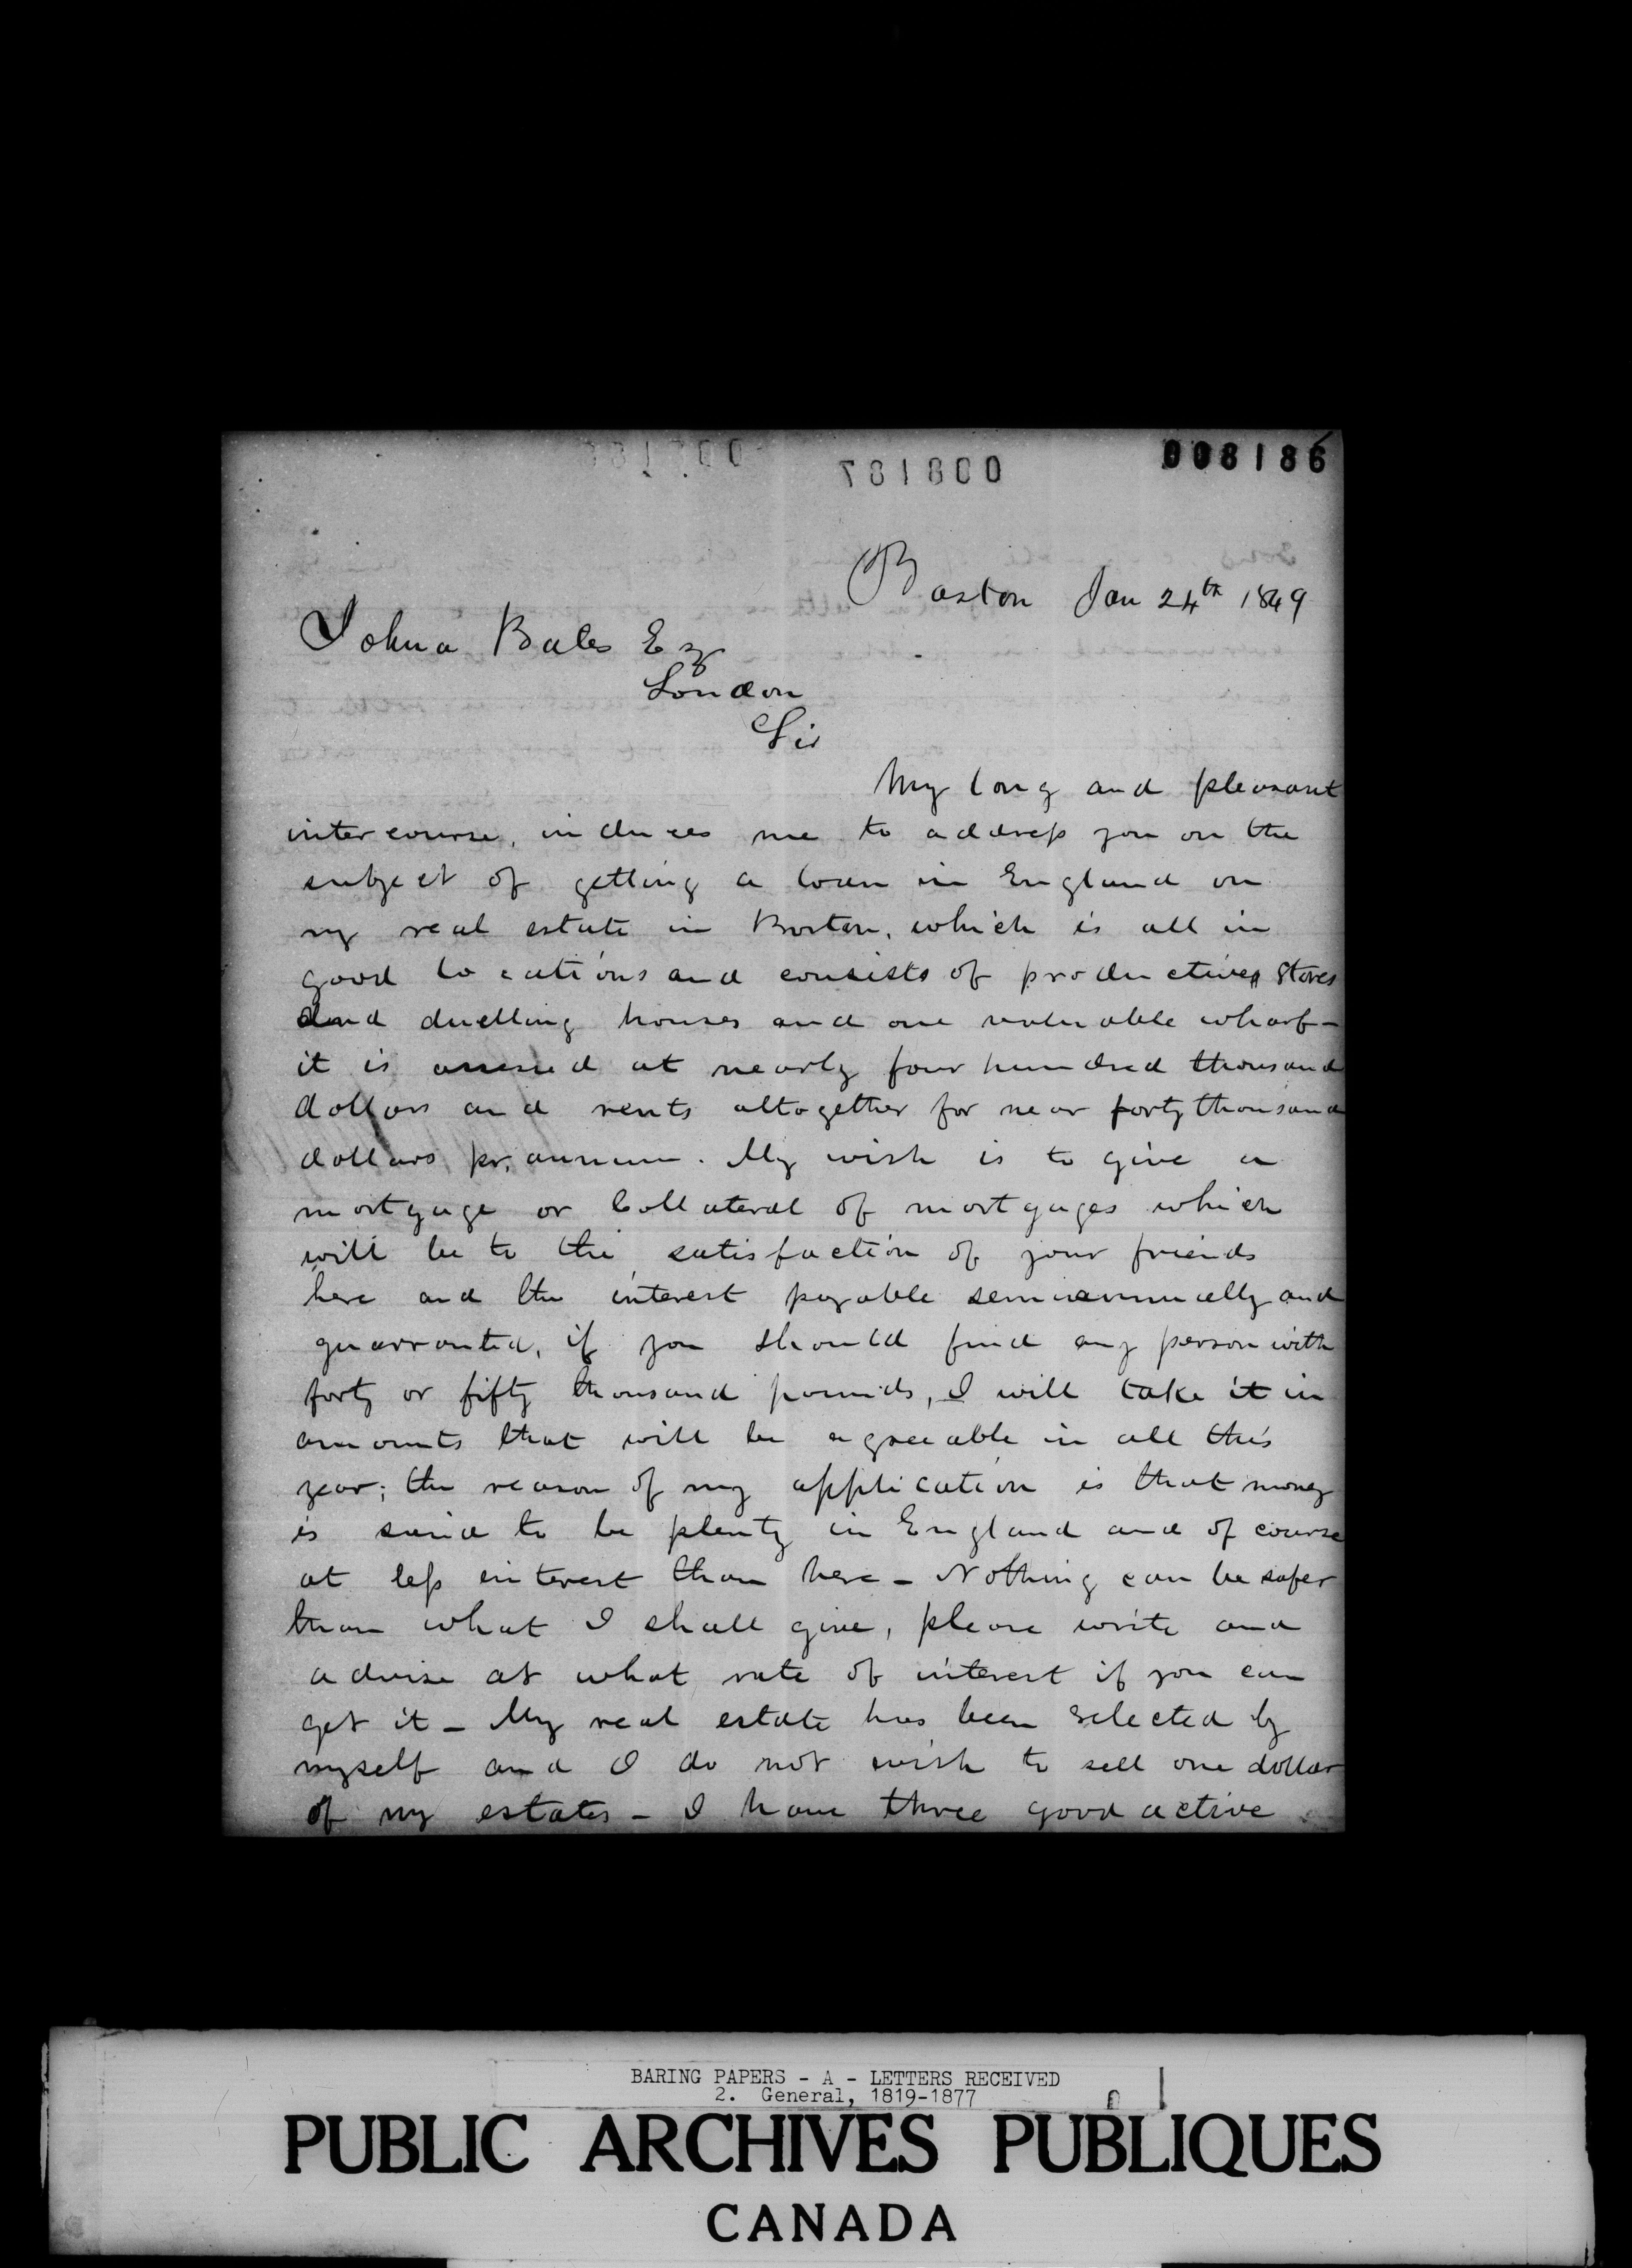 008186
008187
Boston Jan 24th 1849
Johua Bates Esq
London
Sir
My long and pleasant
intercourse, induces me to address you on the
subject of getting a loan in England on
my real estate in Boston, which is all in
good locations and consists of productive, Stores
and dwelling houses and one valuable wharf –
it is assessed at nearly four hundred thousand
dollars and rents altogether for near forty thousand
dollars pr. annum. My wish is to give a
mortgage or Collateral of mortgages which
will be to the satisfaction of your friends
here and the interest payable semiannually and
guarranted, if you should find any person with
forty or fifty thousand pounds, I will take it in
amounts that will be agreeable in all this
year; the reason of my application is that money
is said to be plenty in England and of course
at less interest than here – Nothing can be safer
than what I shall give, please write and
advise at what rate of interest if you can
get it – My real estate has been selected by
myself and I do not wish to sell one dollar
of my estates – I have three good active
BARING PAPERS - A - LETTERS RECEIVED
2. General, 1819-1877
PUBLIC ARCHIVES PUBLIQUES
CANADA